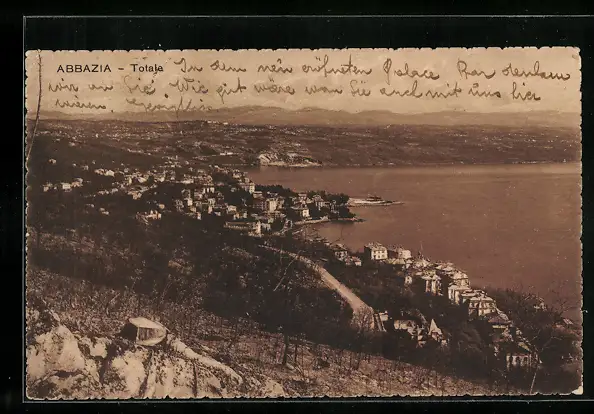 ABBAZIA - Totale
In dem neu eröfneten Palace Bar denken
wir an Sie, gut wäre wan Sie auch mit uns hier
wären